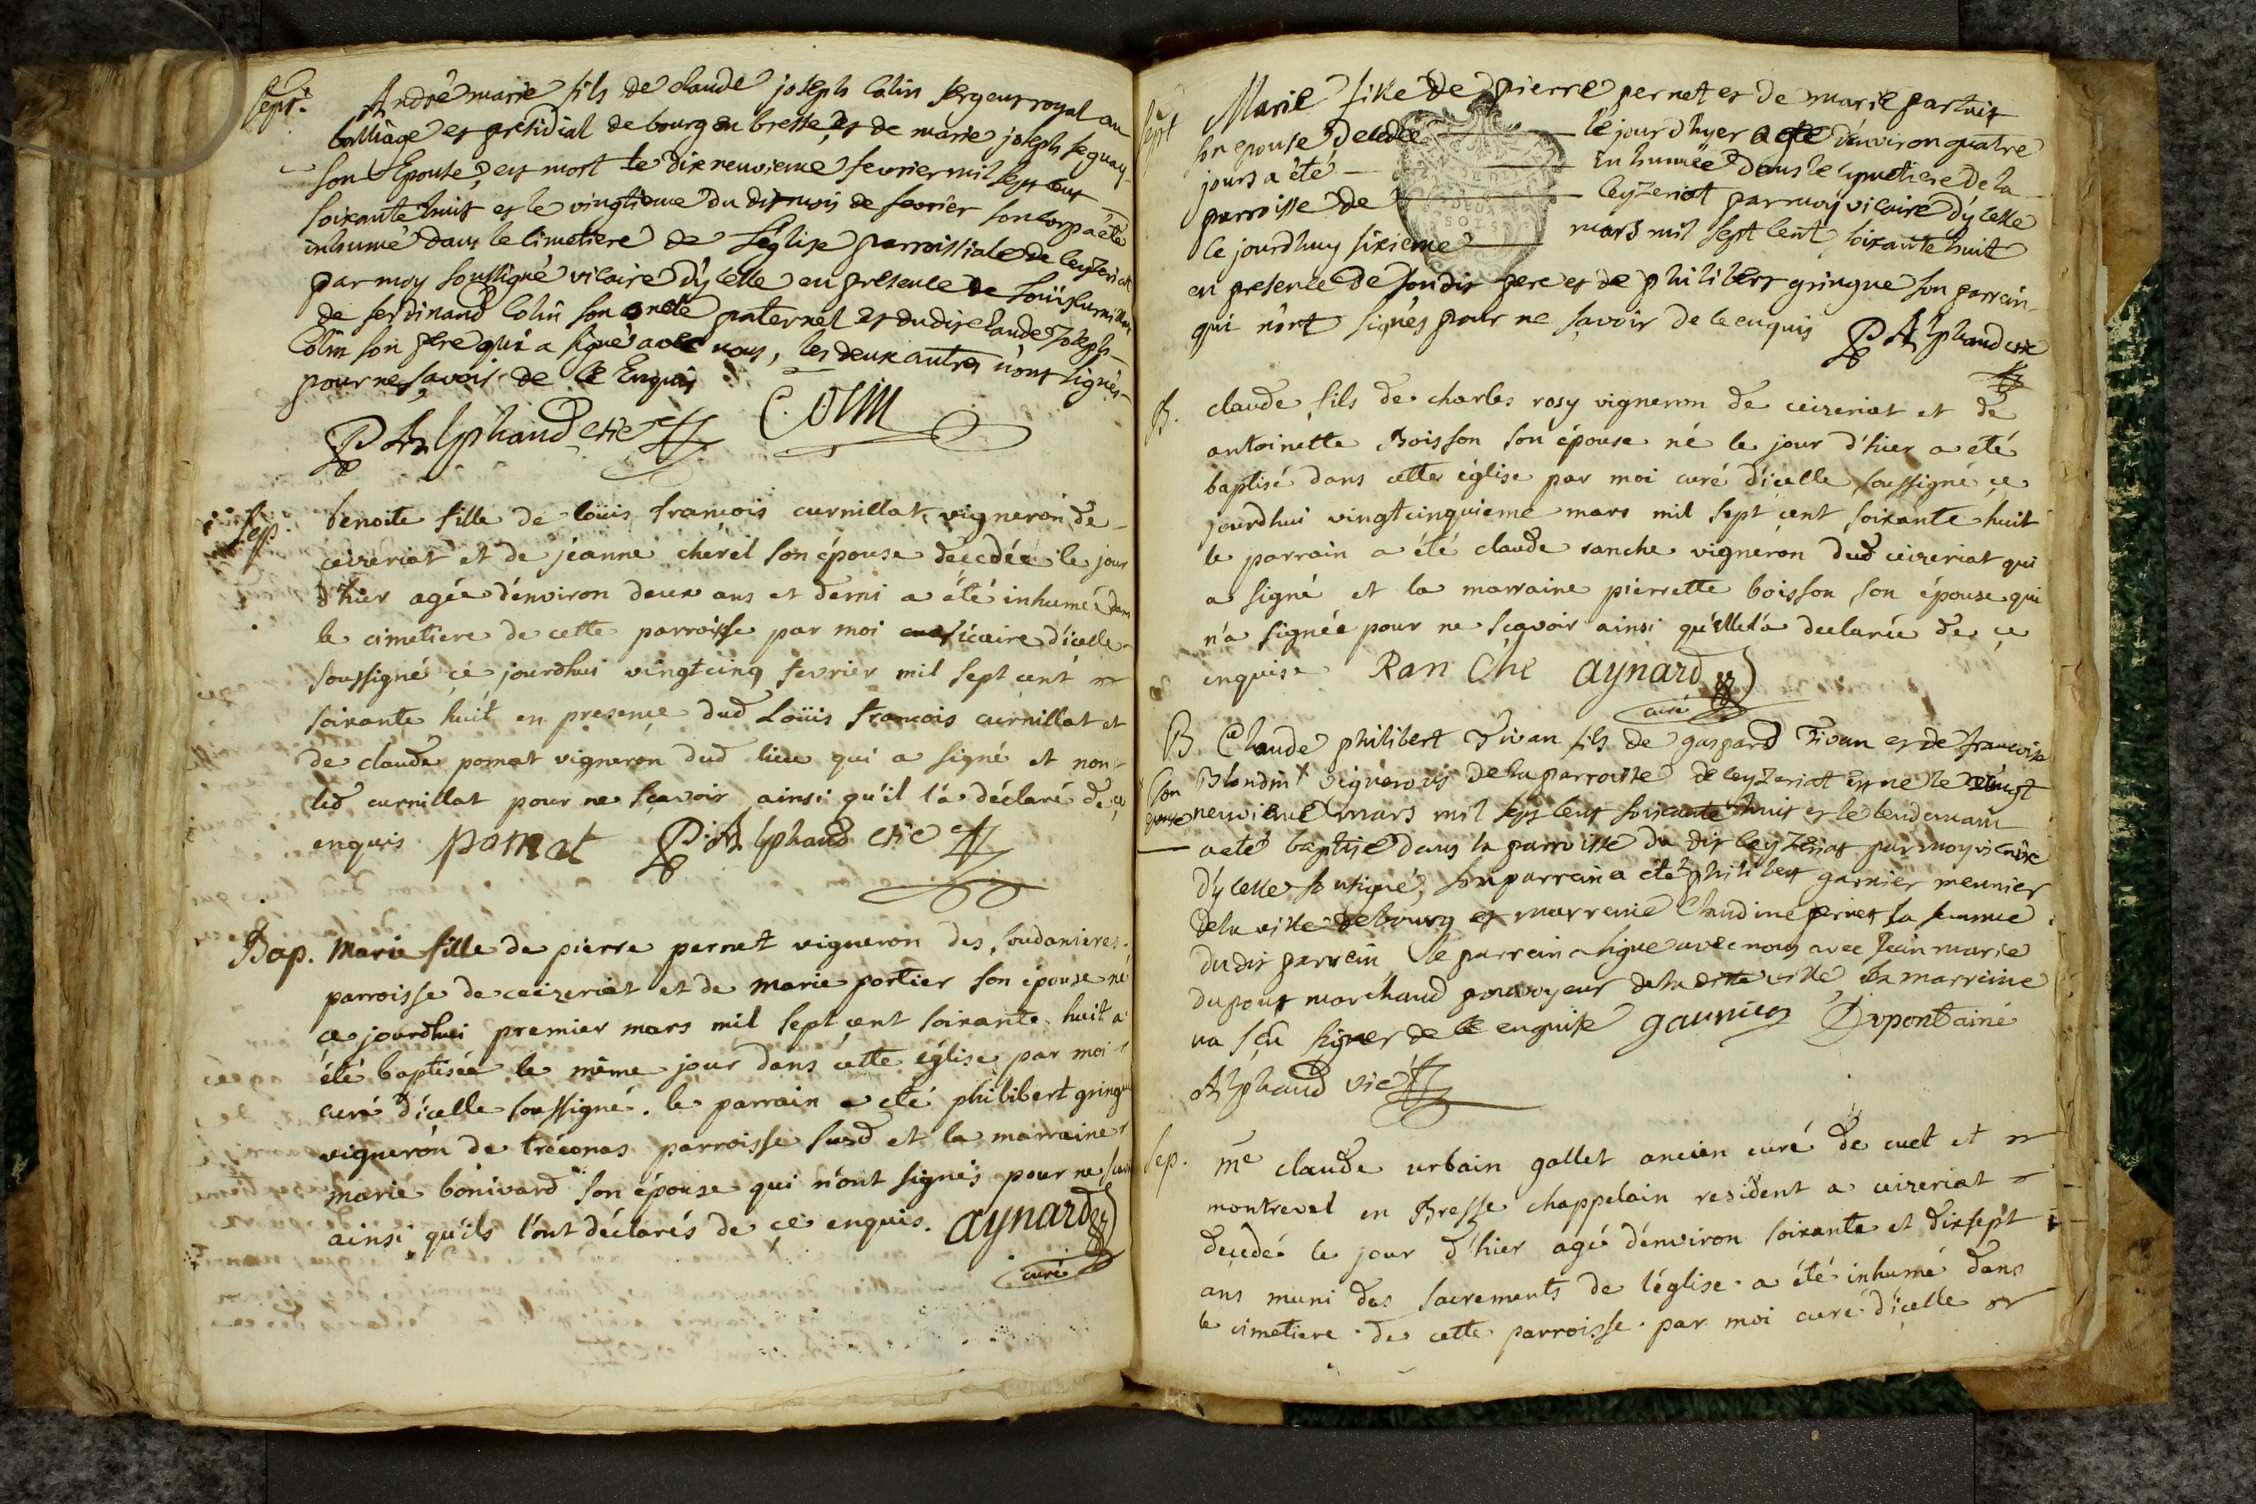 Sept.
André marie fils de claude joseph Colin sergent royal au
balliage et présidial de bourg en bresse, et de marie joseph seguay
son Epouse, est mort le dix neuvieme fevrier mil sept cent
soixante huit et le vingtieme du dit mois de fevrier son corp a été
inhumé dans le cimetiere de l'église parroissiale de Ceyzeriat
par moy soussigné vicaire d'ycelle en présence de
de ferdinand Colin son oncle paternel et dudit claude Joseph
Colin son pere qui a signé avec nous, les deux autres n'ont signés
pour ne sçavoir de ce Enquis
P Alphand vic Colin
Sep.
benoite fille de loüis françois curnillat vigneron de
ceizeriat et de jeanne cherel son épouse décedée le jour
d'hier agée d'environ deux ans et demi a été inhumée dans
le cimetiere de cette parroisse par moi vicaire d'icelle
soussigné ce jourdhui vingtcinq fevrier mil sept cent
soixante huit en presençe dud Loüis françois curnillat et
de claude pomat vigneron dud lieu qui a signé et non
led curnillat pour ne sçavoir ainsi qu'il l'a déclaré de ce
enquis pomat P. Alphand vic
Bap. Marie fille de pierre pernet vigneron des soudanieres
parroisse de ceizeriat et de marie portier son épouse né
ce jourdhui premier mars mil sept cent soixante huit a
été baptisée le même jour dans cette église par moi
curé d'icelle soussigné. le parrain a été philibert gringue
vigneron de tréconas parroisse susd et la marraine
marie bonivard son épouse qui n'ont signés pour ne sçavoir
ainsi qu'ils l'ont déclarés de çe enquis. aynard
curé
Sept
Marie fille de pierre pernet et de marie partuis
son epouse decedée le jour d'hyer agée d'environ quatre
jours a été inhumée dans le cymetiere de la
parroisse de ceyzeriat par moy vicaire d'ycelle
le jourdhuy sixieme mars mil sept cent soixante huit
en presence de sondit pere et de philibert gringue son parrain
qui n'ont signés pour ne sçavoir de ce enquis P Alphand vic
B.
claude fils de charles rosy vigneron de ceizeriat et de
antoinette Boisson son épouse né le jour d'hier a été
baptisé dans cette église par moi curé d'icelle soussigné ce
jourdhui vingtcinquieme mars mil sept cent soixante huit
le parrain a été claude ranche vigneron dud ceizeriat qui
a signé et la marraine pierrette boisson son épouse qui
n'a signée pour ne sçavoir ainsi qu'elle l'a declarée de ce
enquise Ranche aynard
curé
B Claude philibert Tivan fils de gaspard Tivan et de françoise
Blondin x vignerons de la parroisse de ceyzeriat est né le vingt
son epouse
neuvieme mars mil sept cent soixante huit et le lendemain
a eté baptisé dans la parroisse du dit ceyzeriat par moy vicaire
d'ycelle soussigné, son parrain a été philibert garnier meunier
de la ville de bourg et marreine Claudine pernet sa femme
dudit parrein le parrein a signé avec nous avec Jean marie
dupont marchand pourvoyeur de la dite ville, la marreine
na sçu signer de ce enquise garnier Dupont ainé
Alphand vic
Sep.
me claude urbain gallet ancien curé de cuet et
montrevel en Bresse chappelain resident a ceizeriat
decedé le jour d'hier agé d'environ soixante et dixsept
ans muni des sacrements de l'église a été inhumé dans
le cimetiere de cette parroisse par moi curé d'icelle